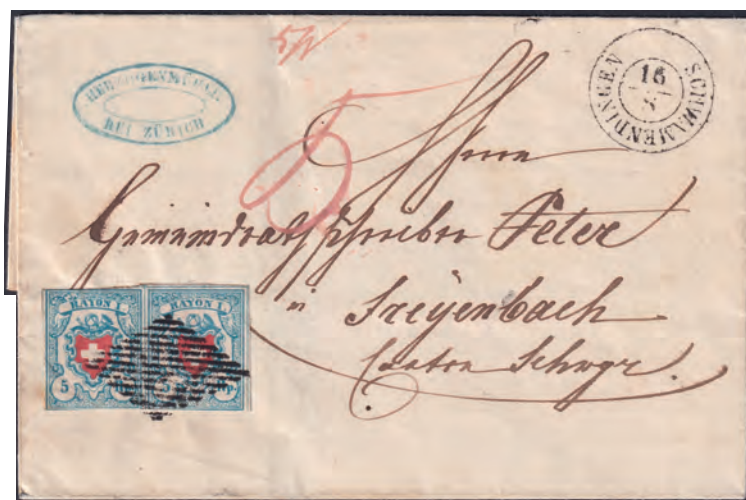 HERZOGENMÜHLE
BEI ZÜRICH
SCHWAMENDINGEN
16
8
5
Herrn
Gemeindrathschreiber Peter
in
Freyenbach
Canton Schwyz.
RAYON I.
5
RAYON I.
5
Rp